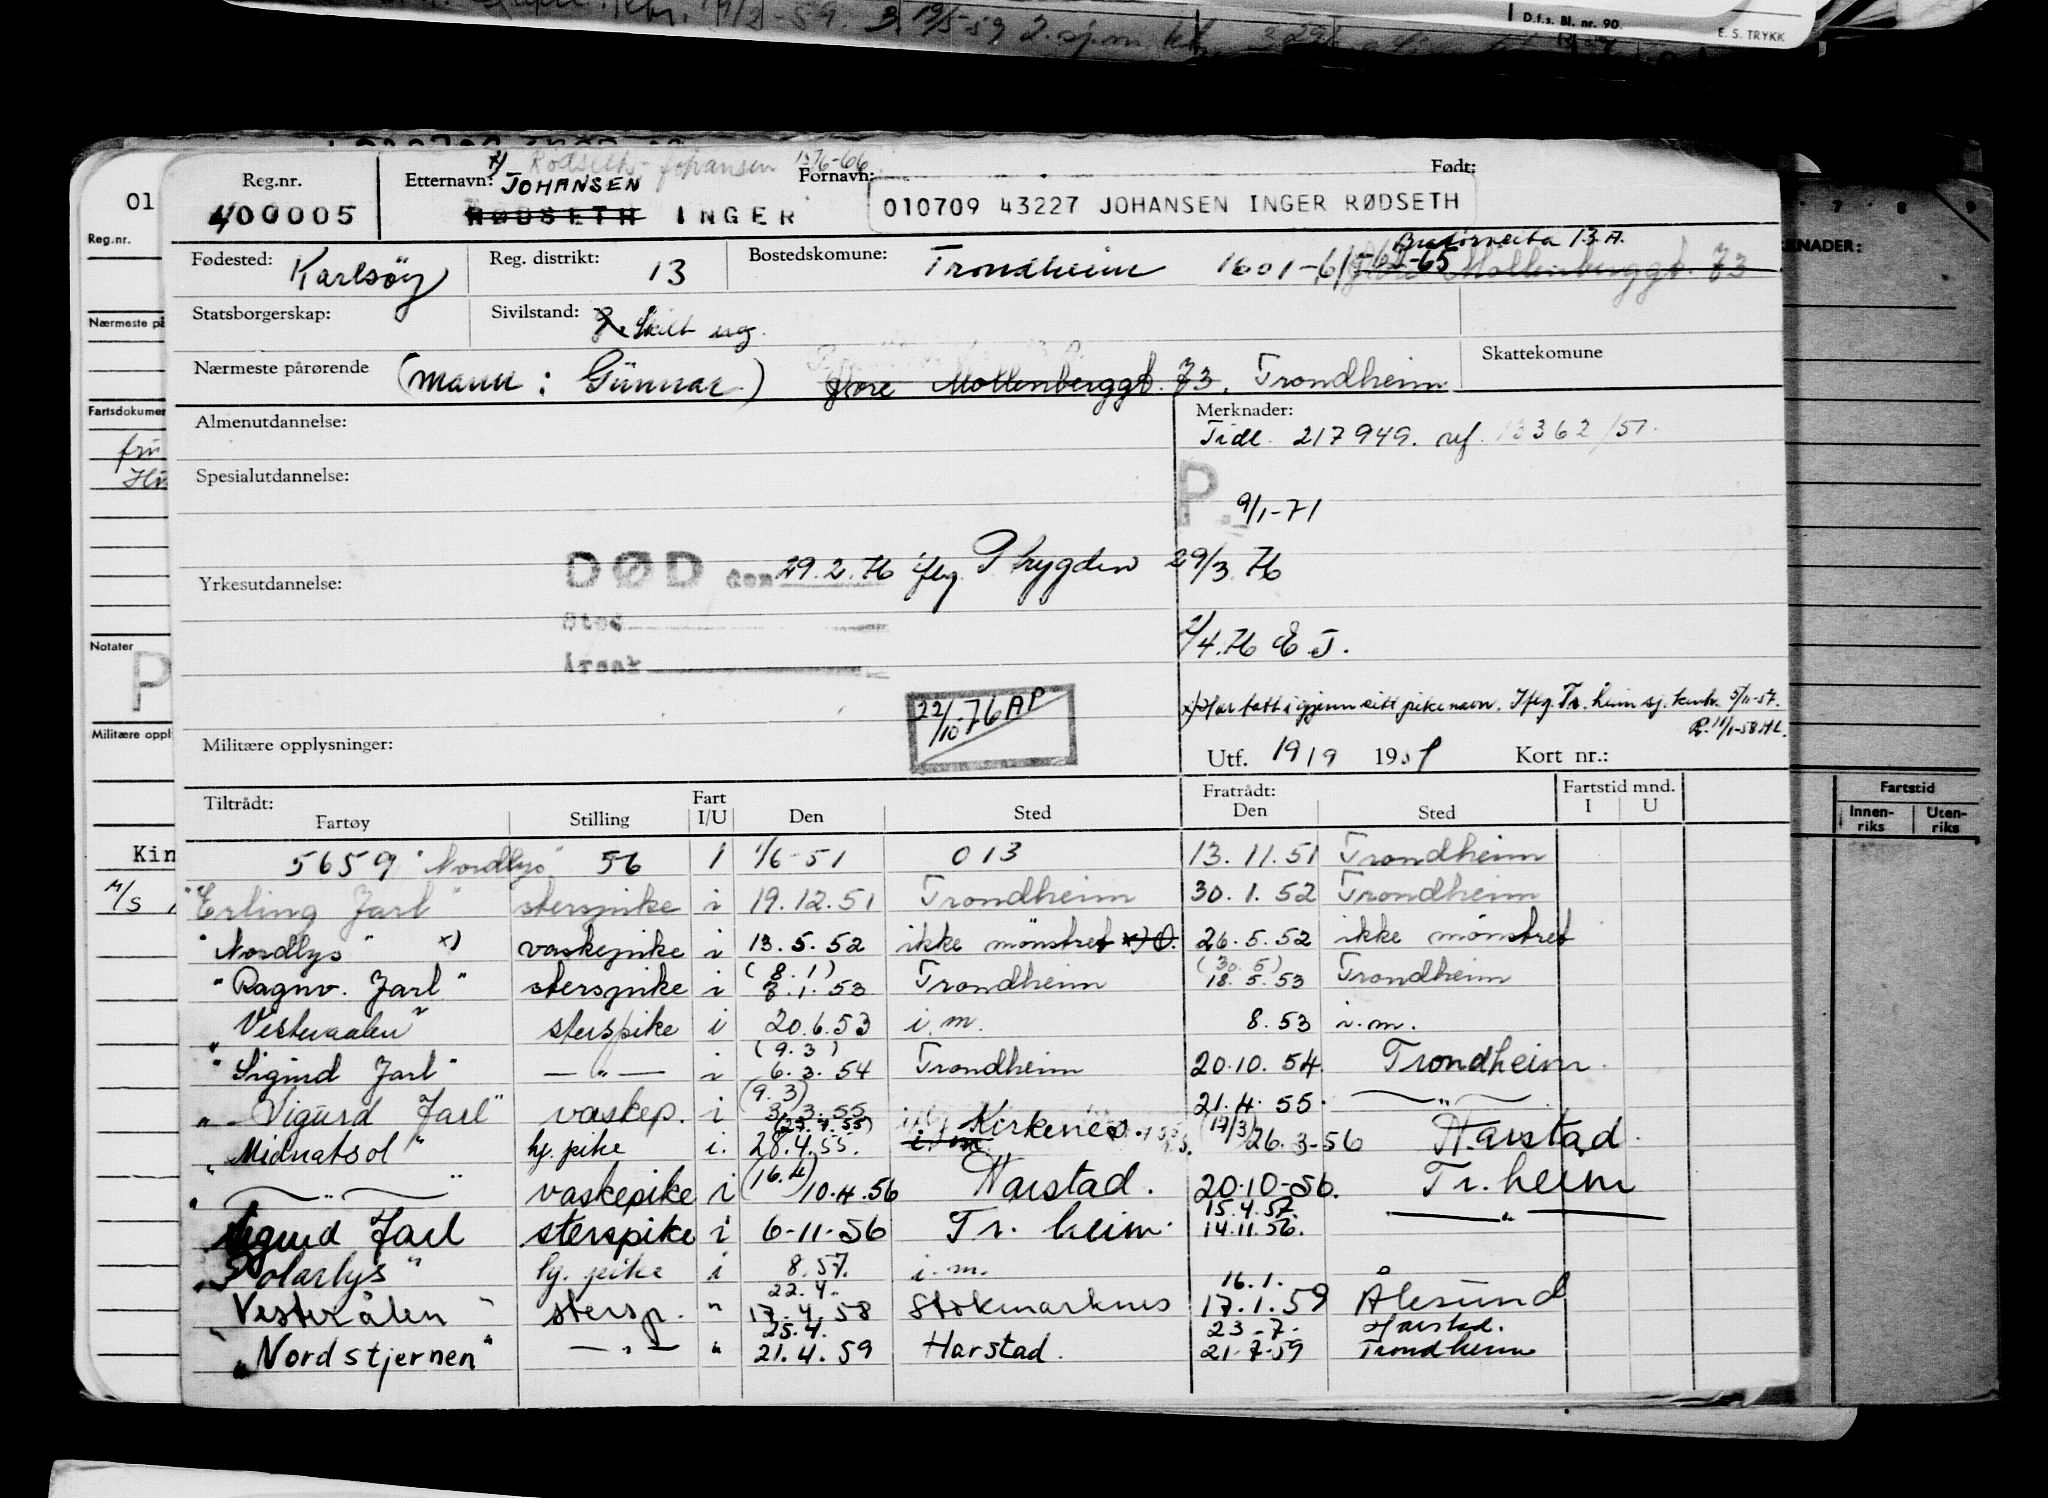 D.f.s. Bl. nr. 90
E. S. TRYKK
Reg.nr. 400005
Etternavn: x) Rødseth-Johansen 15/6-66 Fornavn: Født:
JOHANSEN
RØDSETH INGER
010709 43227 JOHANSEN INGER RØDSETH
Fødested: Karlsöy Reg. distrikt: 13 Bostedskomune: Trondheim 1601-61 Mollenberggt. 73
13.A.
Statsborgerskap: Sivilstand: Skilt
Nærmeste pårørende (mann: Günnar) Mollenberggt. 73, Trondheim Skattekomune
Almenutdannelse: Merknader:
Tidl. 217949. ref. 13362/51.
Spesialutdannelse:
P. 9/1-71
Yrkesutdannelse: DØD den 29.2.76 ifлg. P trygden 29/3.76
Sted
Årsak
2/4.76 E.J.
22/10-76 AP
x) Har tatt igjenn sitt pikenavn. Iflg. Tr.heim sj. kontr. 5/11-57.
R. 11/1-58 HL.
Militære opplysninger: Utf. 19/9 1951 Kort nr.:
Tiltrådt: Fart Fratrådt: Fartstid mnd.
Fartøy Stilling I/U Den Sted Den Sted I U
5659 "Nordlys" 56 1 1/6-51 013 13.11.51 Trondheim
"Erling Jarl" sterspike i 19.12.51 Trondheim 30.1.52 Trondheim
"Nordlys" x) vaskepike i 13.5.52 ikke mønstret x) 26.5.52 ikke mønstret
(8.1) (30.5)
"Ragnv. Jarl" sterspike i 8.1.53 Trondheim 18.5.53 Trondheim
"Vesteraalen" sterspike i 20.6.53 i.m. 8.53 i.m.
(9.3)
"Sigurd Jarl" — " — i 6.3.54 Trondheim 20.10.54 Trondheim.
(9.3)
"Sigurd Jarl" vaskep. i 3.3.55 21.4.55. — " —
"Midnatsol" hj. pike i. 28.4.55. i.m. Kirkenes (17/3) 26.3-56 Harstad.
" — " — " vaskepike i (16.4) 10.4.56 Harstad. 20.10-56. Tr.heim
15.4.57.
Sigurd Jarl sterspike i 6-11-56 Tr. heim. 14.11.56. — " —
"Polarlys" hj. pike i 8.57. i.m.
22.4. 16.1.
"Vesterålen" stersp. " 17.4.58 Stokmarknes 17.1.59 Ålesund
25.4. 23-7- Harstad.
"Nordstjernen" — " — " 21.4.59 Harstad. 21-7-59 Trondheim
01
Reg.nr.
Nærmeste på
Fartsdokumer
Notater
P
Militære oppl
Kin
M/S
7 8 9
NADER:
Fartstid
Innen-riks Uten-riks